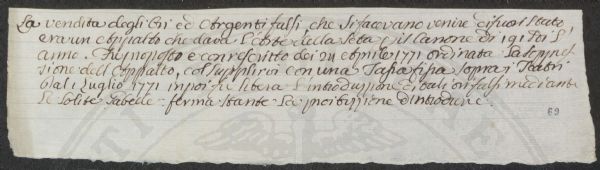 La vendita degli Ori ed Argenti falsi, che si facevano venire di fuori Stato
era un Appalto che dava l'Arte della Seta il Canone di 191 l'
anno. Fu proposto e con rescritto dei 24 Aprile 1771 ordinata la soppres
sione dell'Appalto, col supplirvi con una Tassa fissa sopra i Teatri
e dal 1 Luglio 1771 in poi fu libera l'introduzione di tali ori falsi mediante
le solite Gabelle: ferma stante la proibizione d'introdurre.
69